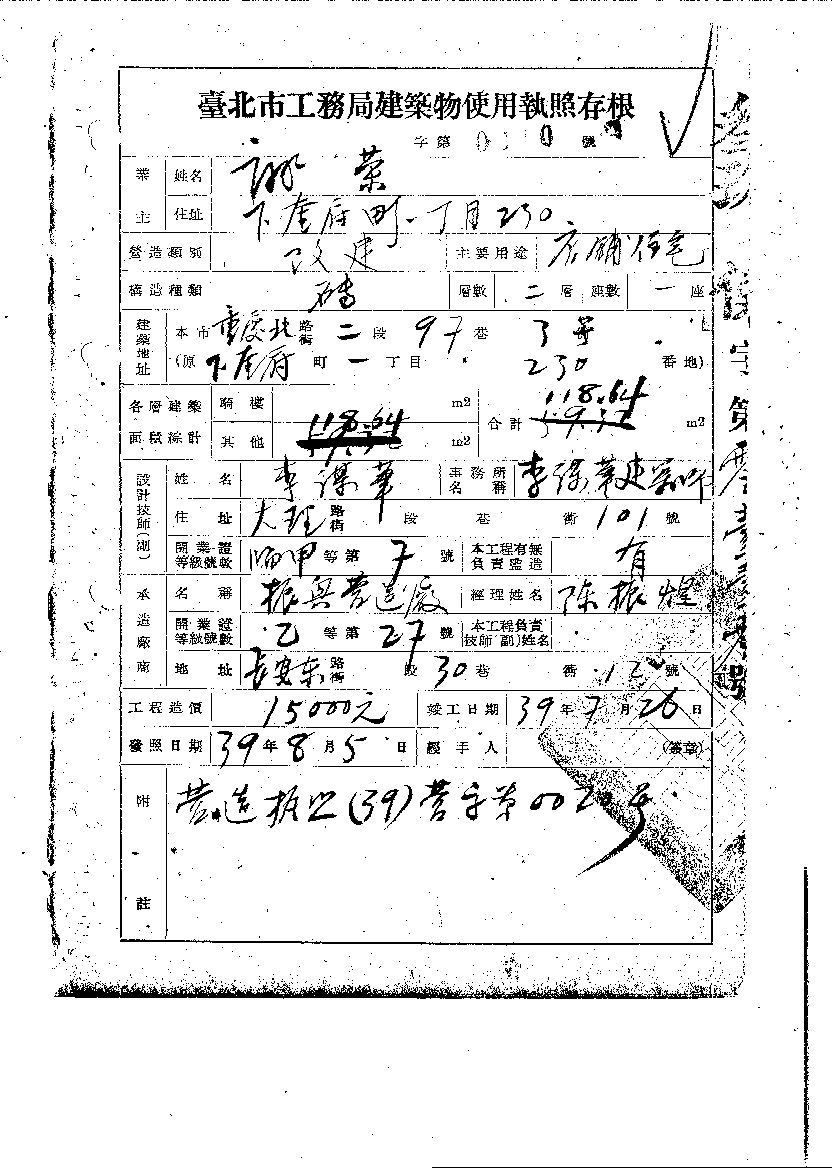 臺北市工務局建築物使用執照存根
字第 號
業主 姓名 榮
住址 下奎府町一丁目230
營造類別 改建 主要用途 店鋪住宅
構造種類 磚 層數 二層 座數 一座
建築地址 本市 重慶北 路街 二段 97巷 3号
(原 下奎府 町 一 丁目 230 番地)
各層建築面積綜計 騎樓 m2 合計 118.64 m2
其他 118.64 m2
設計技師(副) 姓名 李謀華 事務所名稱 李謀華建築師
住址 大理 路街 段 巷 衖 101 號
開業證等級號數 甲等第 7 號 本工程有無負責監造 有
承造廠商 名稱 振興营造廠 經理姓名 陈振煌
開業證等級號數 乙等第 27 號 本工程負責技師(副)姓名
地址 長安東 路街 段 30巷 衖 12號
工程造價 15000元 竣工日期 39年7月26日
發照日期 39年8月5日 經手人 (簽章)
附註 营造执照(39)营字第0020号
字第零壹壹零號